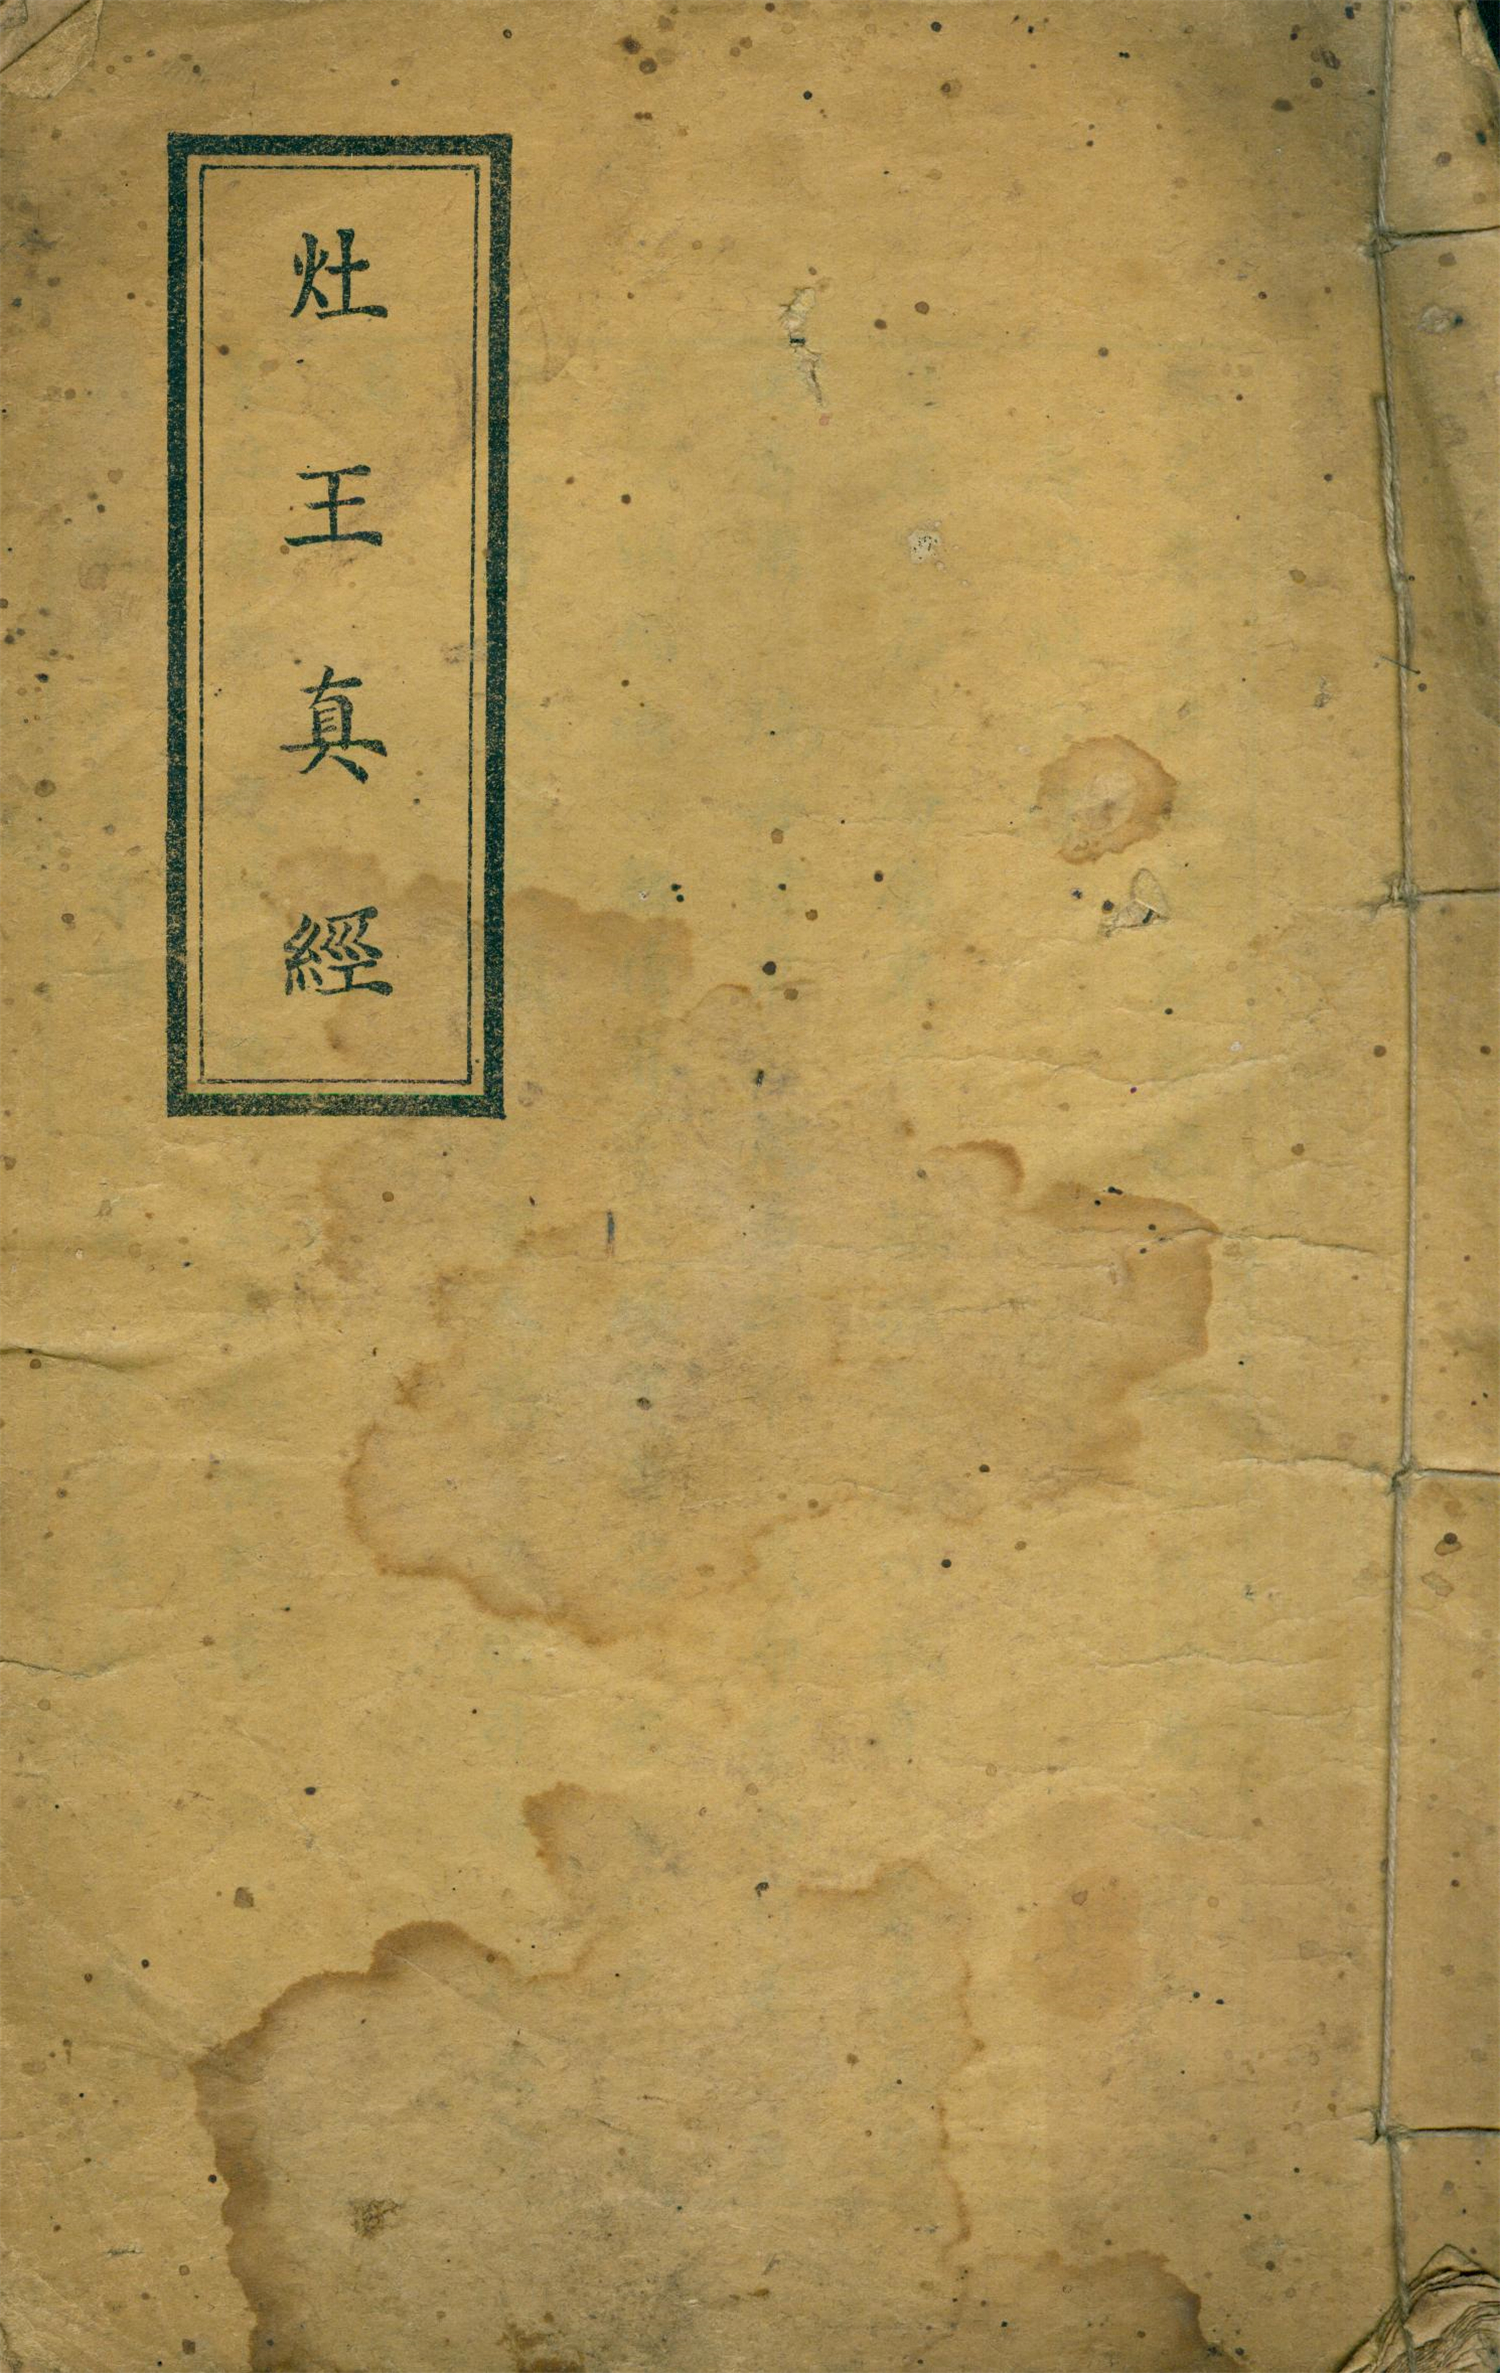 灶王真經